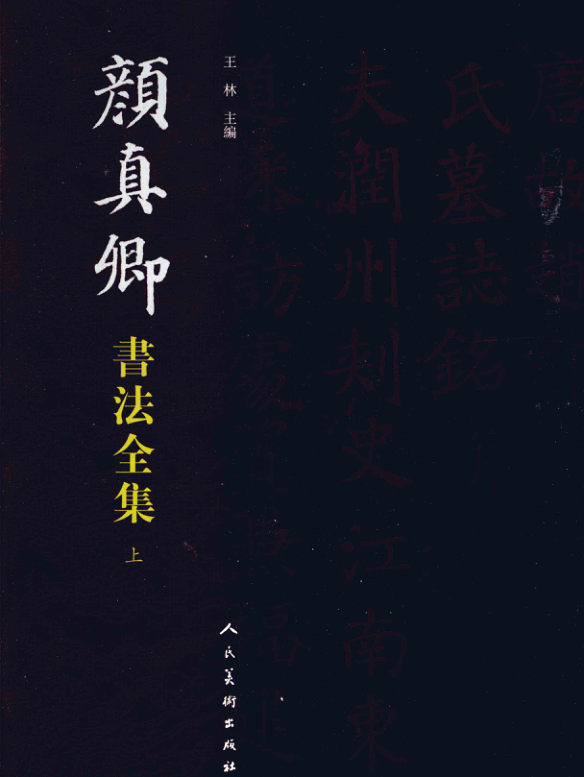 顔真卿
書法全集
上
王林 主編
人民美術出版社
氏墓誌銘
夫潤州刾史江南東